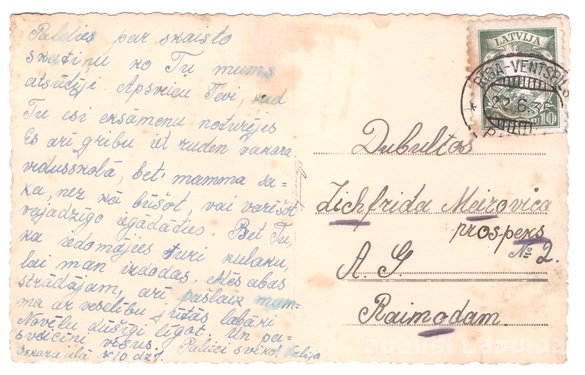 Paldies par skaisto
skatiņu ko Tu mums
atsūtīji. Apsveicu Tevi, kad
Tu esi eksāmenu noturējis
Es arī gribu iet rudenī vakara
vidusskolā, bet mamma sa-
ka, nez kā būšot vai varēšot
vajadzīgo iegādāties. Bet Tu,
ka iedomājies turi kulaku,
lai man izdodas. Mēs abas
strādājam, arī pašlaiz mam-
ma ar veselību jūtās labāki
Novēlu dūšīgi līgot. Un pa-
sveicini visus.
Oskara ielā
Paliec sveiks
LATVIJA
10
RIGA-VENTSPILS
22.6.36
Dubultos
Zichfrida Meirovica
prospeks
№ 2.
A. G
Raimodam.